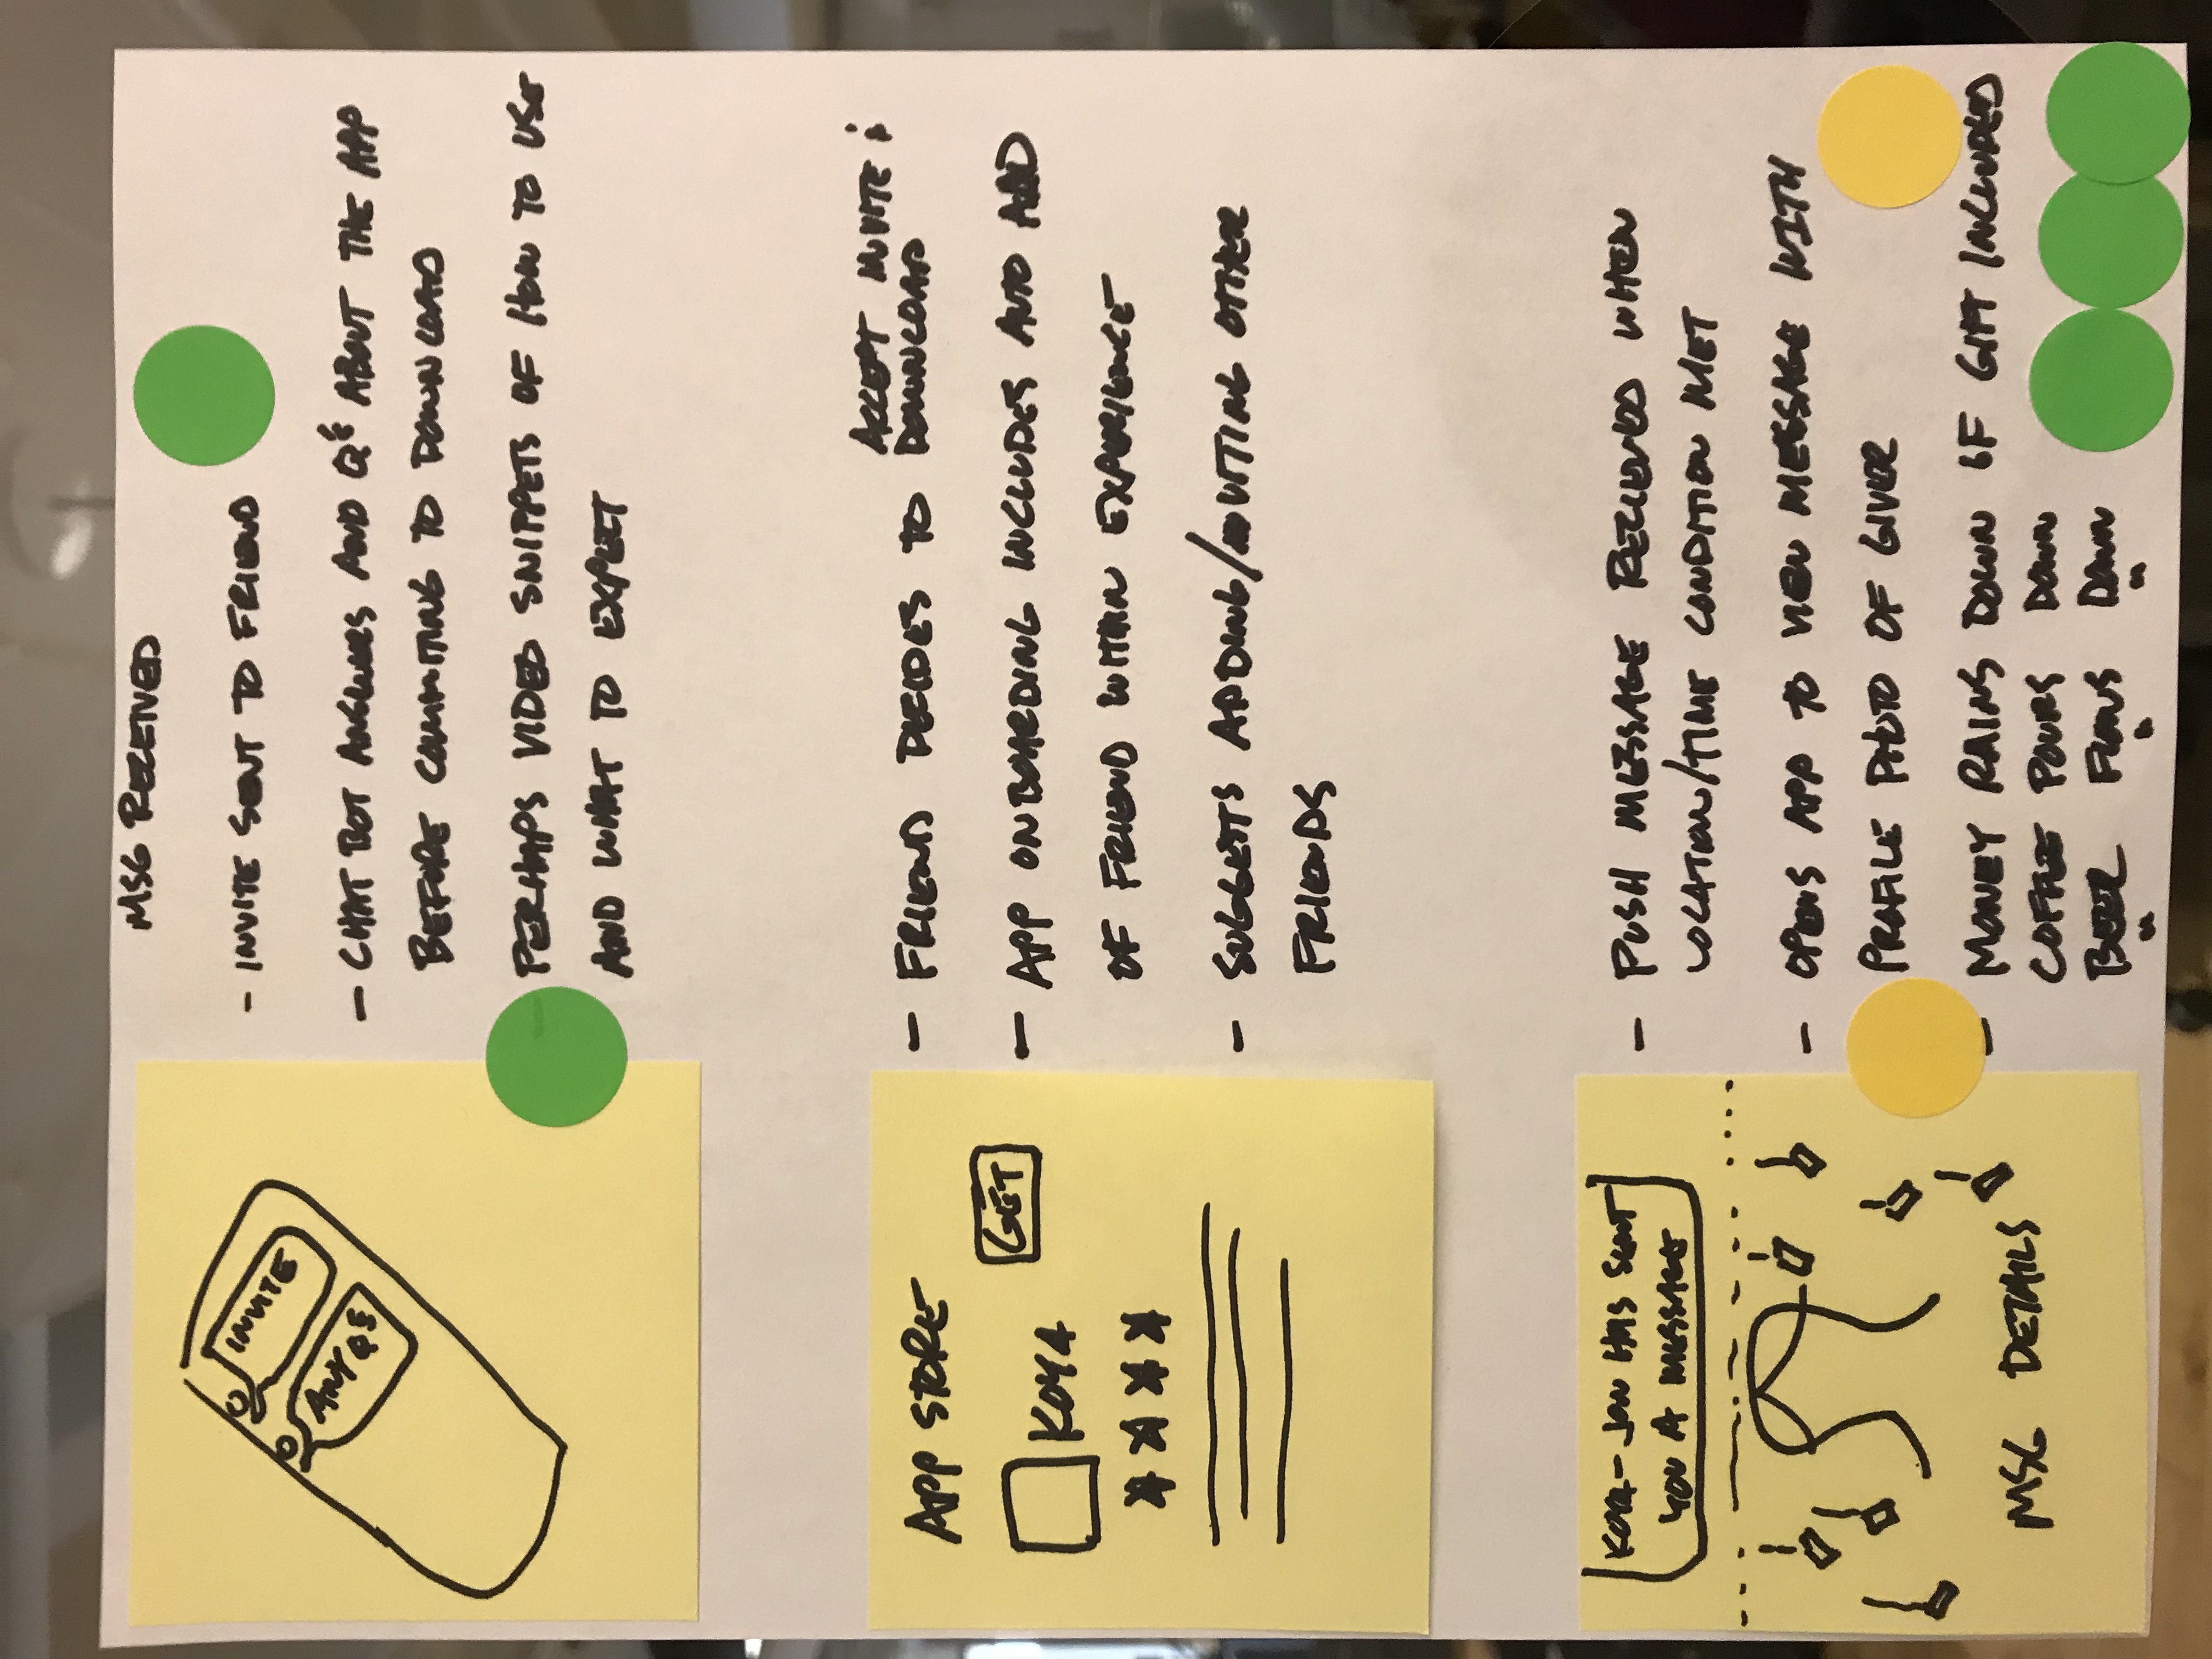 MSG RECEIVED
INVITE
ANY Q'S
- INVITE SENT TO FRIEND
- CHAT BOT ANSWERS AND Q'S ABOUT THE APP
BEFORE COMMITING TO DOWNLOAD
- PERHAPS VIDEO SNIPPETS OF HOW TO USE
AND WHAT TO EXPECT
APP STORE
GET
KOYA
- FRIEND DECIDES TO ACCEPT INVITE &
DOWNLOAD
- APP ONBOARDING INCLUDES AUTO ADD
OF FRIEND WITHIN EXPERIENCE
- SUGGESTS ADDING/INVITING OTHER
FRIENDS
KOYA - JON HAS SENT
YOU A MESSAGE
MSG DETAILS
- PUSH MESSAGE RECIEVED WHEN
LOCATION/TIME CONDITION MET
- OPENS APP TO VIEW MESSAGE WITH
PROFILE PHOTO OF GIVER
- MONEY RAINS DOWN IF GIFT INCLUDED
COFFEE POURS DOWN
BEER FLOWS DOWN
" " "